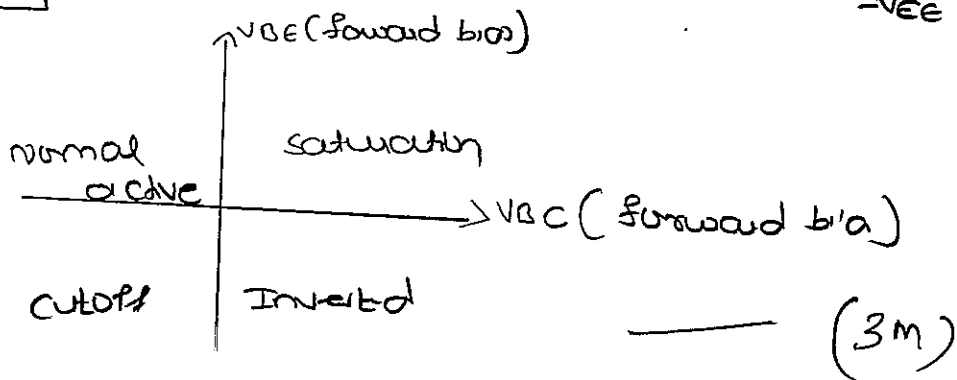 -VEE
VBE (foward bias)
normal saturation
active
VBC (forward bia)
cutoff Inverted
(3M)